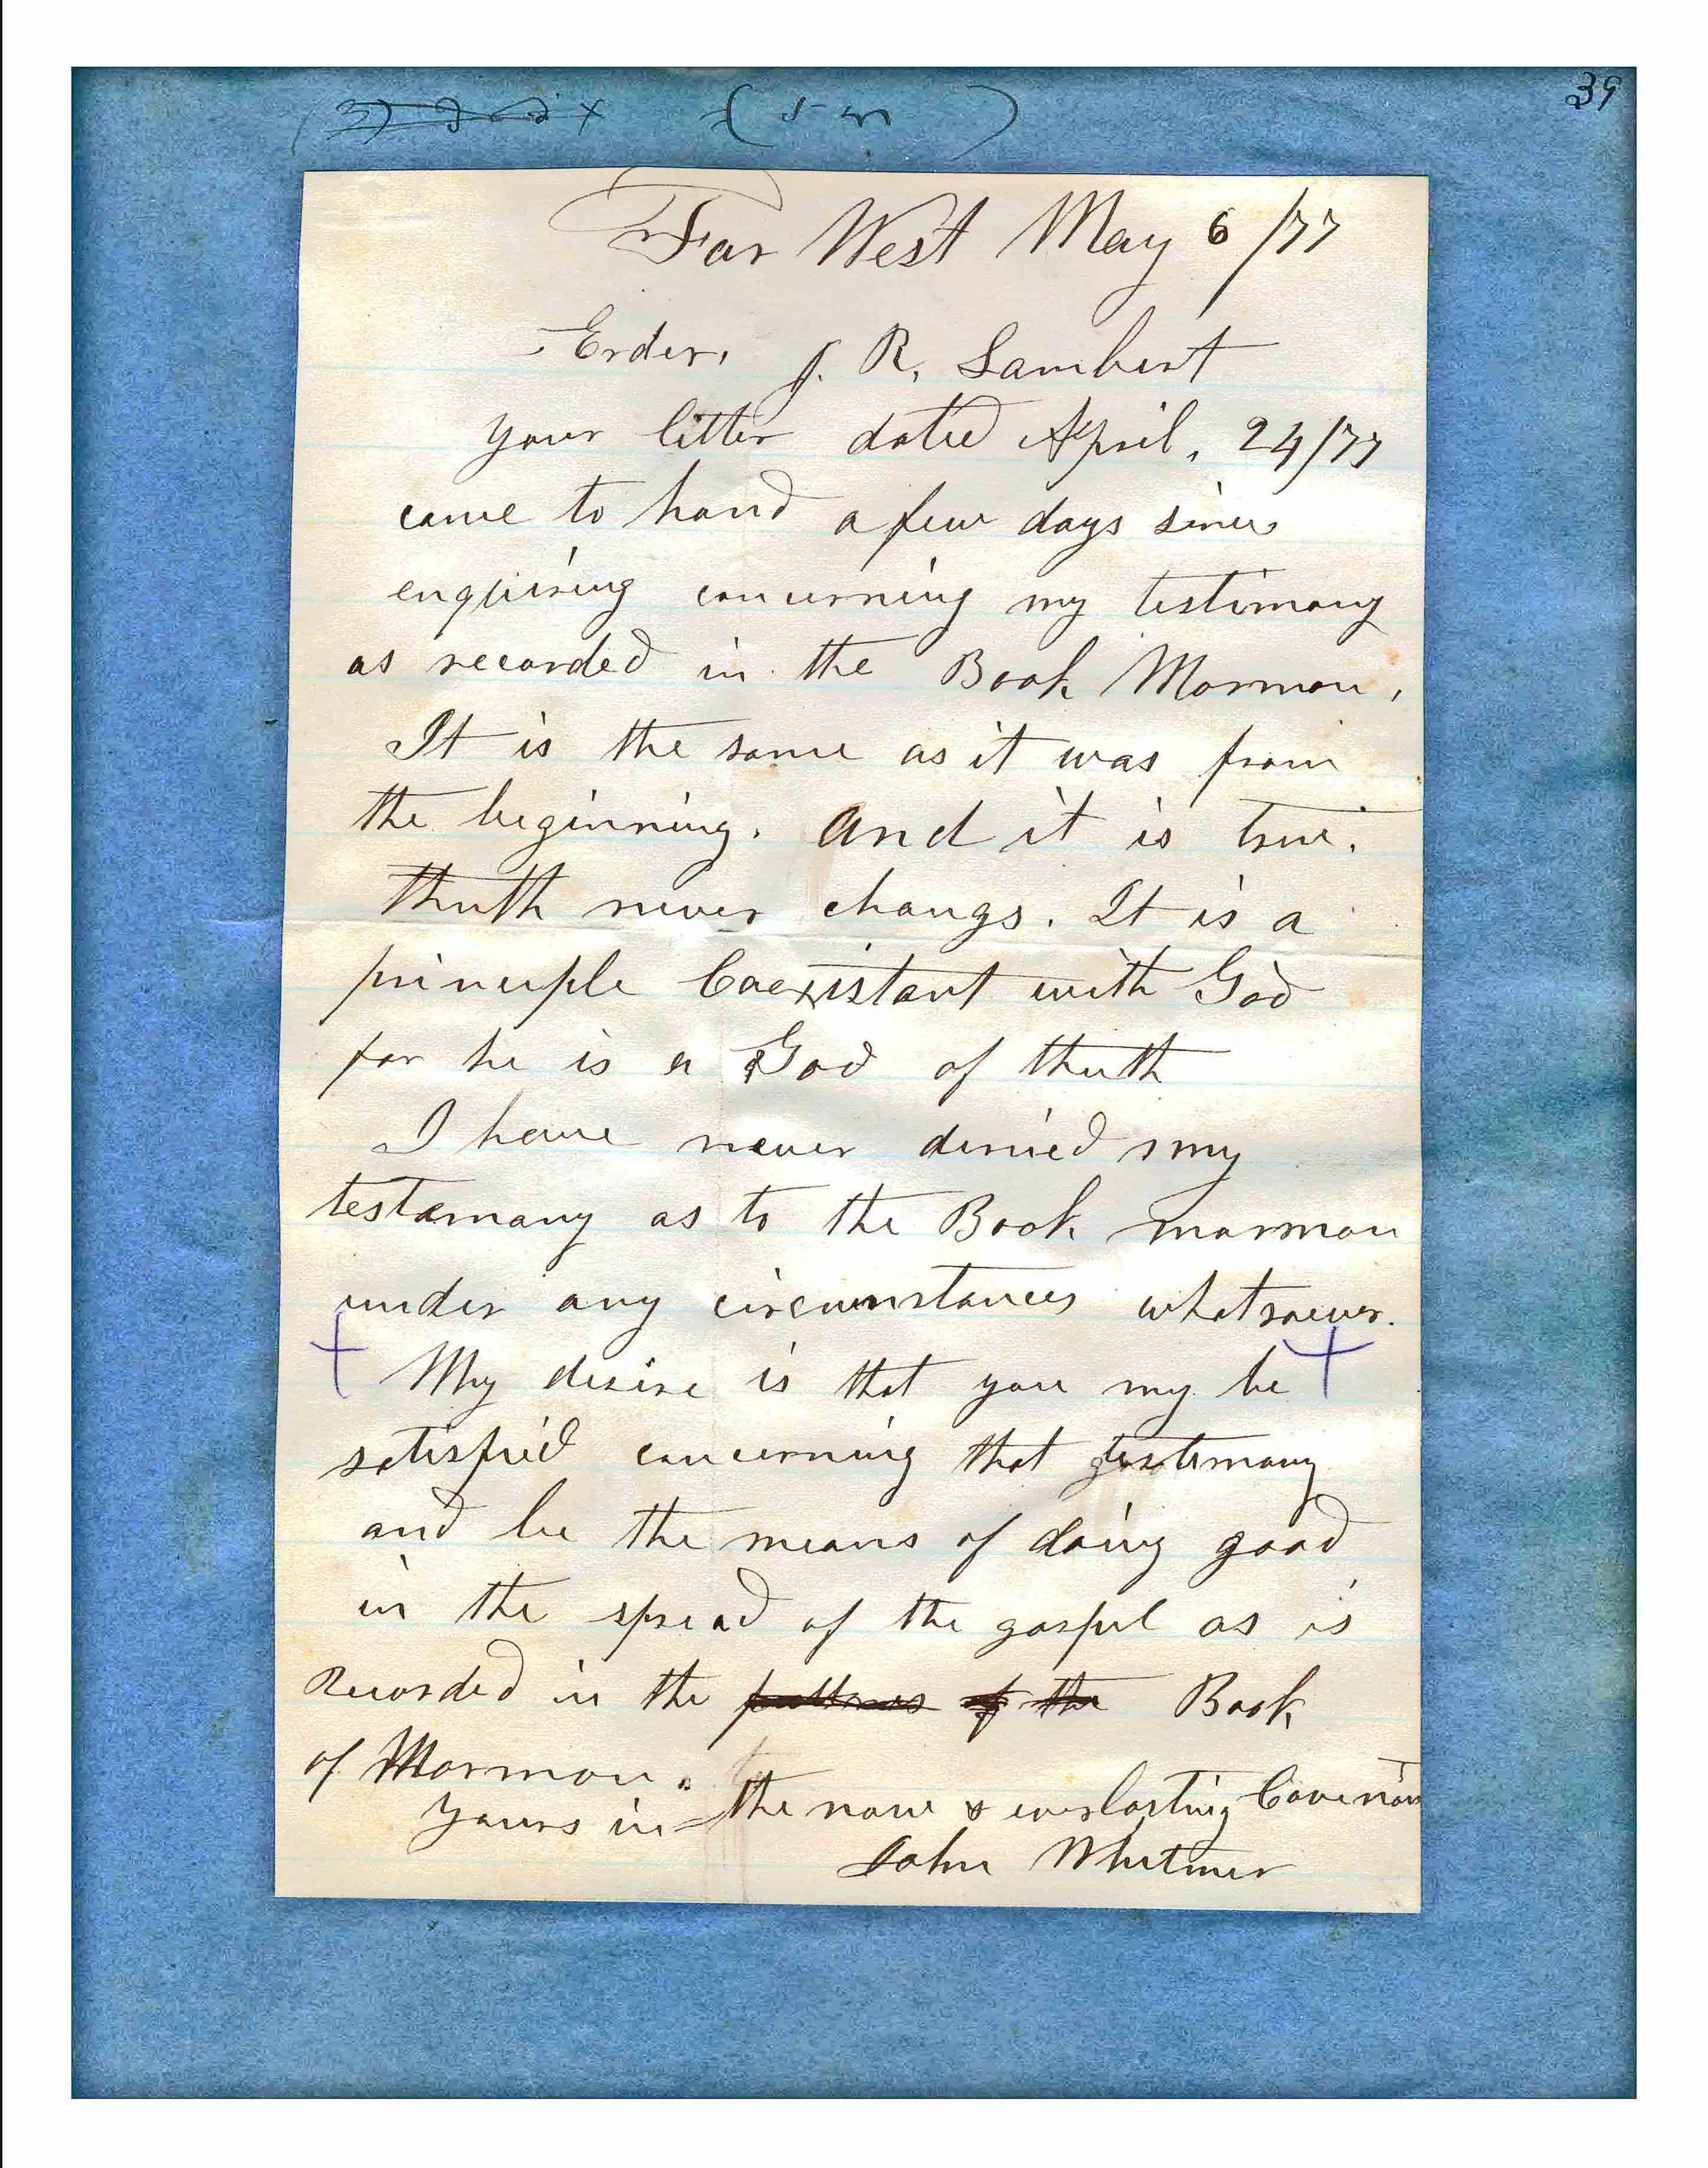 39
Far West May 6/77
Erder. J. R. Lambert
your letter dated April, 24/77
came to hand a few days since
enquiring concerning my testimony
as recorded in the Book Mormon,
It is the same as it was from
the beginning. and it is true.
thuth never changs. It is a
principle Coexistant with God
for he is a God of thuth
I have never denied my
testamony as to the Book mormon
under any circumstances whatsoever.
My desire is that you my be
satisfied concerning that testimony
and be the means of doing good
in the spread of the gospel as is
Recorded in the Book
of Mormon.
yours in the new & everlasting Covenan
John Whitmer